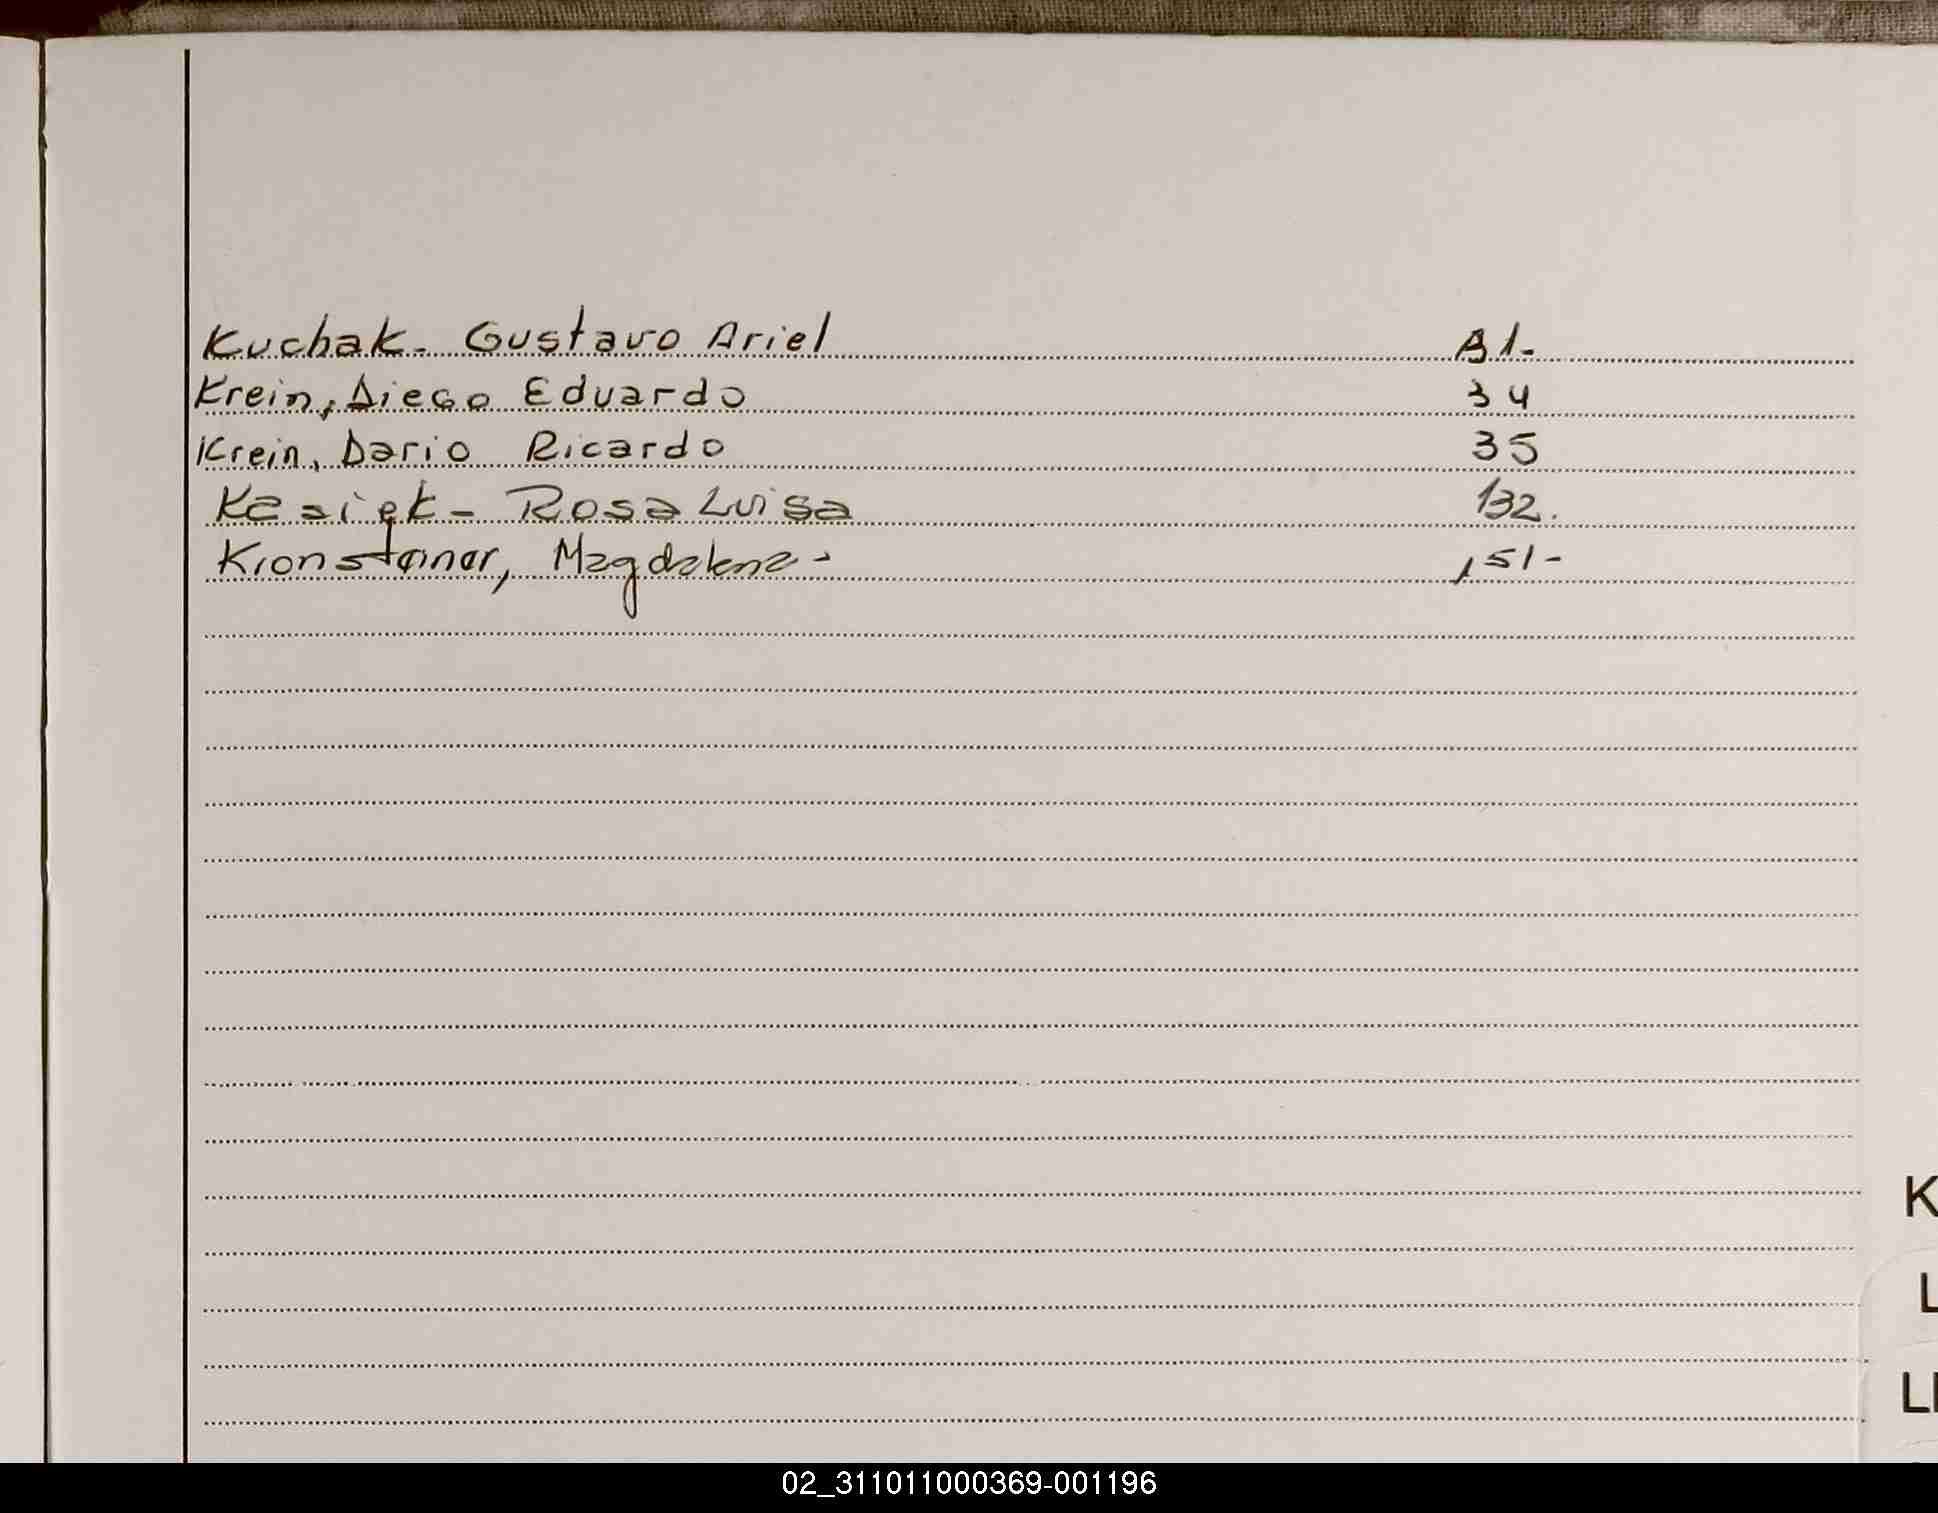 Kuchak - Gustavo Ariel 31-
Krein, Diego Eduardo 34
Krein, Dario Ricardo 35
Rosa Luisa 132.
Magdalena - 151-
K
L
02_311011000369-001196